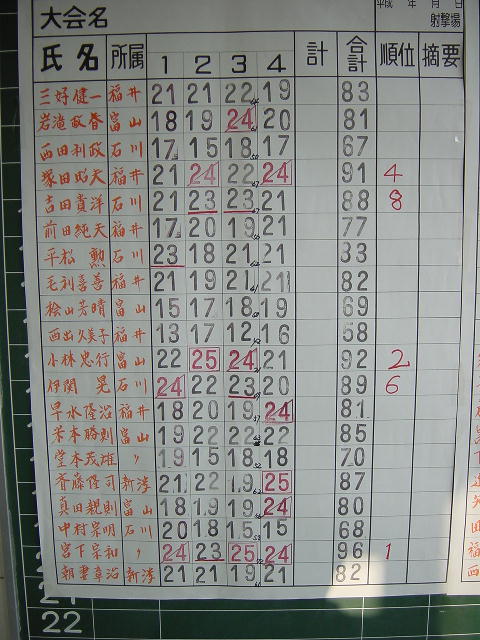 大会名 平成 年 月 日
射撃場
氏名 所属 1 2 3 4 計 合計 順位 摘要
三好健一 福井 21 21 22 19 83
岩滝政春 富山 18 19 24 20 81
西田利政 石川 17 15 18 17 67
塚田昭夫 福井 21 24 22 24 91 4
吉田貴洋 石川 21 23 23 21 88 8
前田純夫 福井 17 20 19 21 77
平松 勲 石川 23 18 21 21 33
毛利善喜 福井 21 19 21 21 82
桧山芳晴 富山 15 17 18 19 69
西出久美子 福井 13 17 12 16 58
小林忠行 富山 22 25 24 21 92 2
伊関 晃 石川 24 22 23 20 89 6
早水隆治 福井 18 20 19 24 81
米本勝則 富山 19 22 22 22 85
堂本茂雄 〃 19 15 18 18 70
斉藤隆司 新潟 21 22 19 25 87
真田親則 富山 18 19 19 24 80
中村宗明 石川 20 18 15 15 68
宮下宗和 〃 24 23 25 24 96 1
朝妻章治 新潟 21 21 19 21 82
21
22